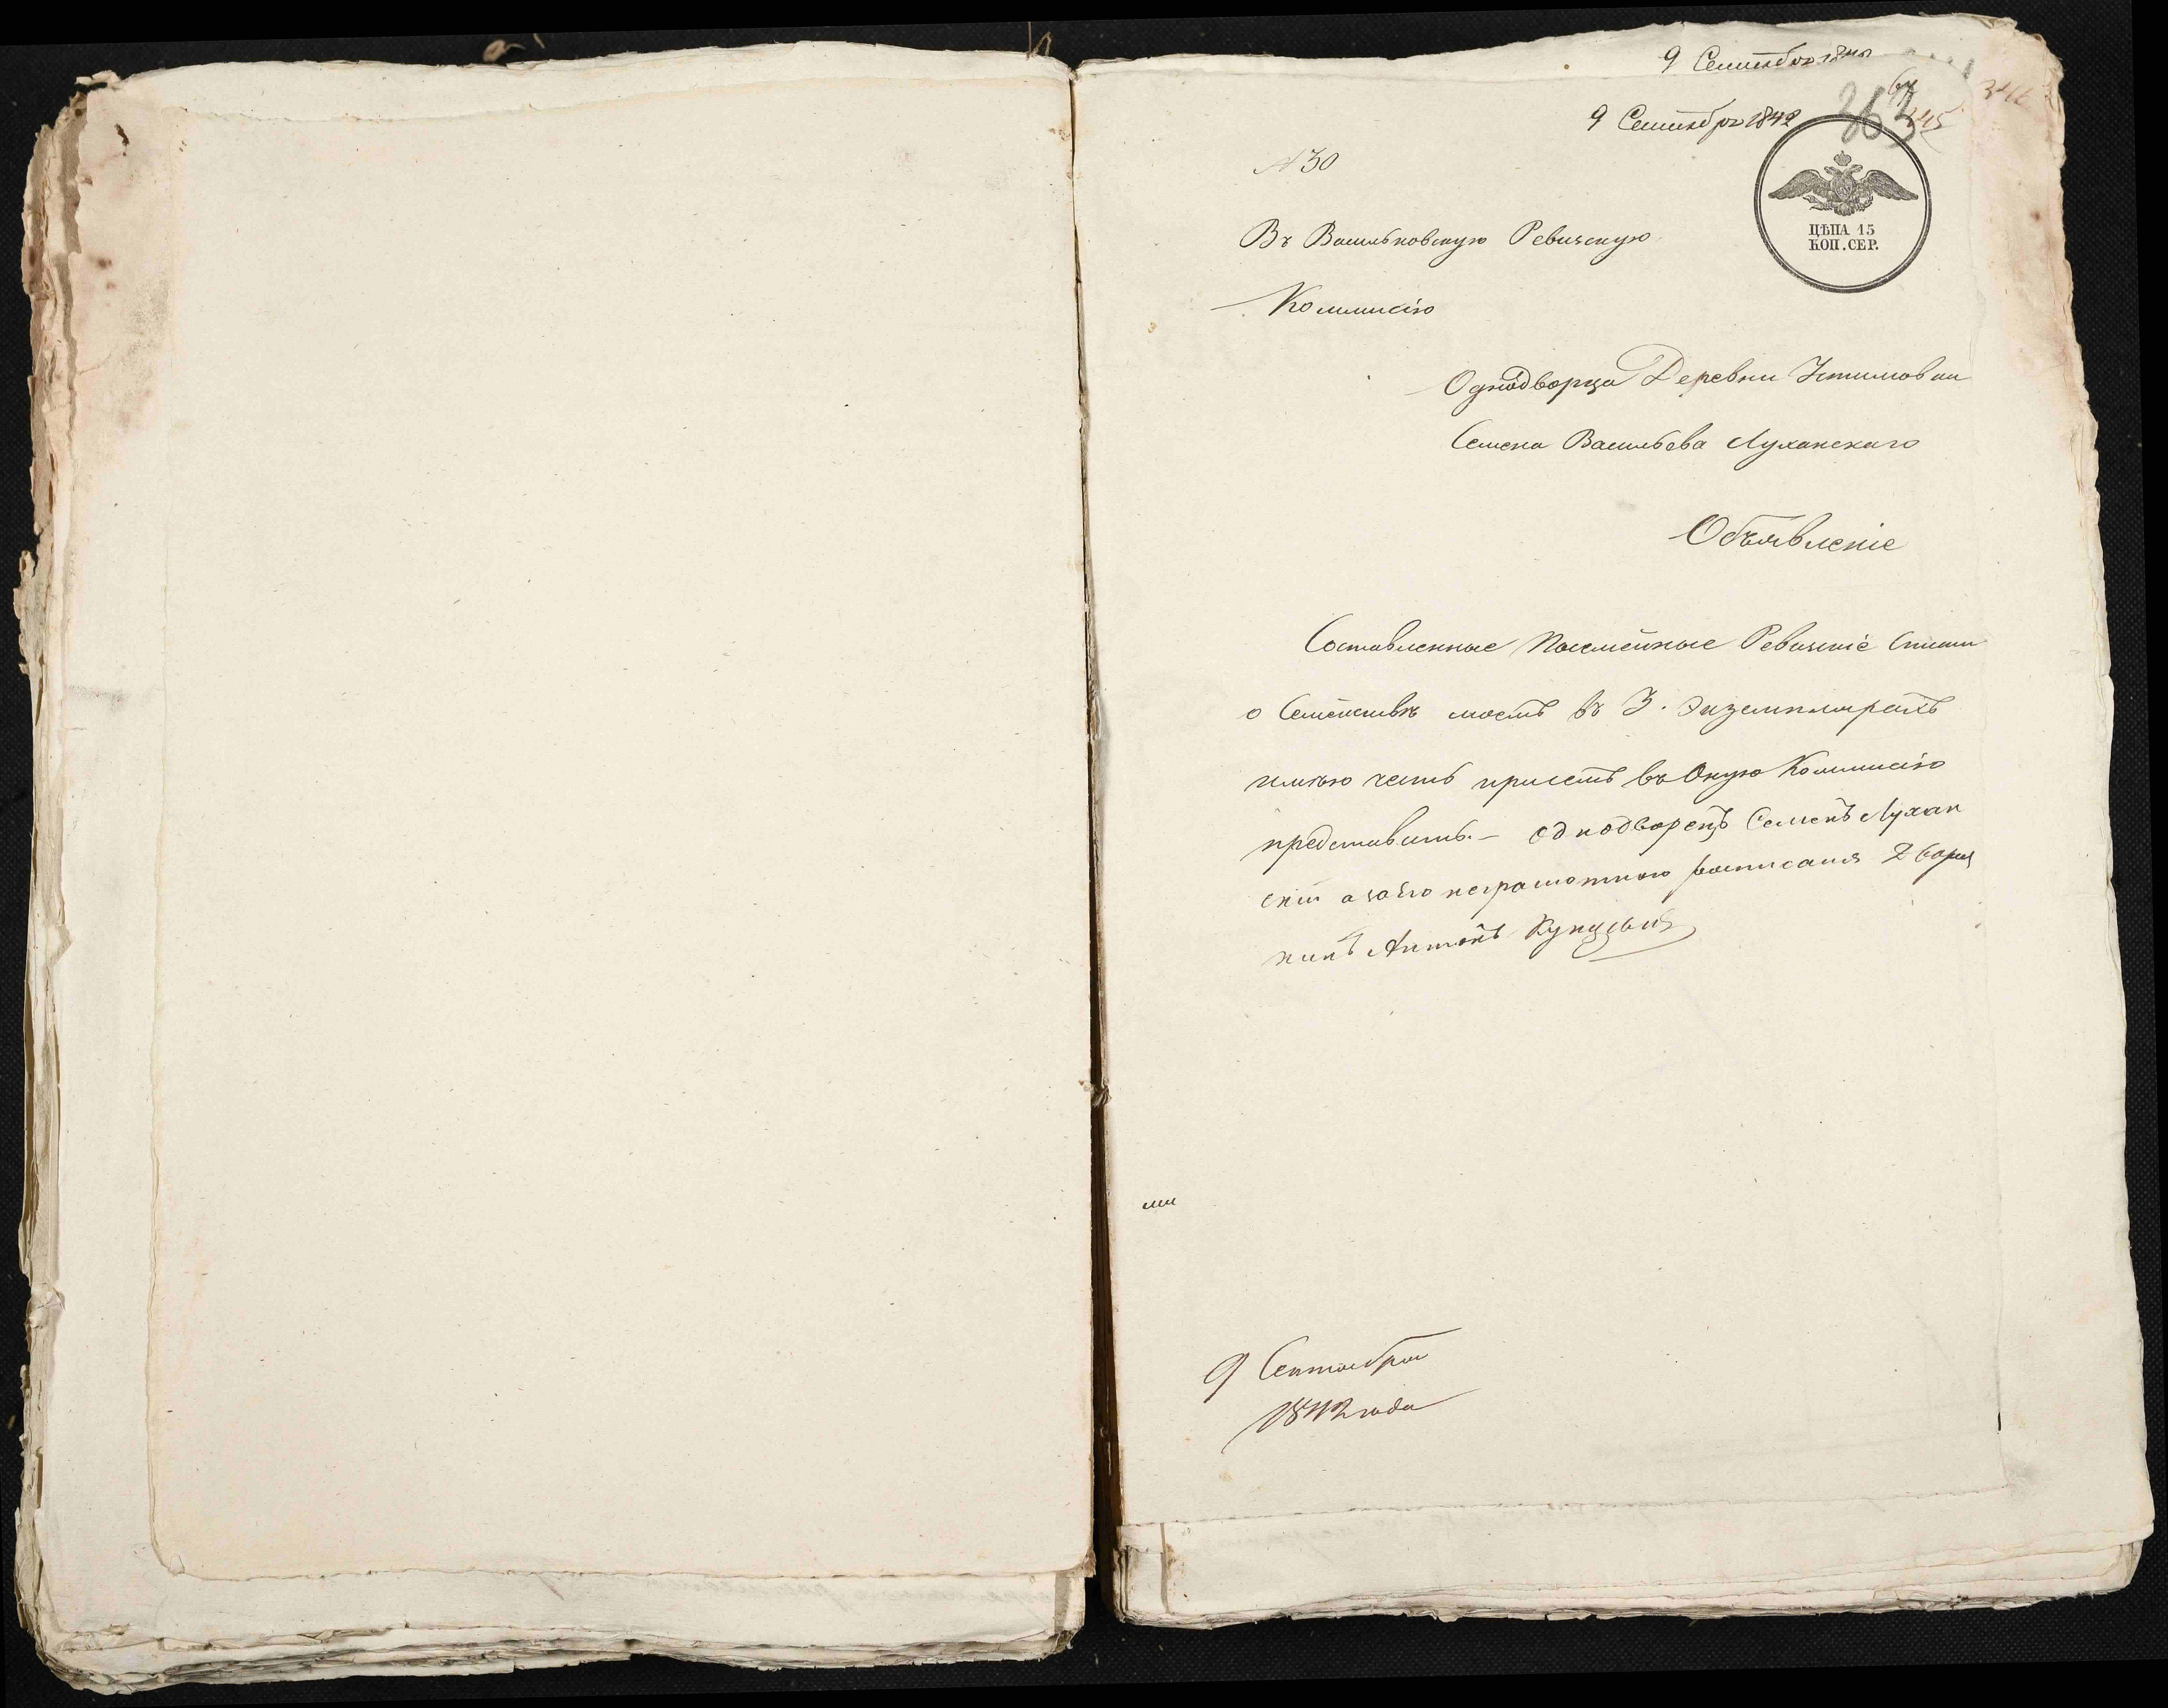 9 Сентября 1842
9 Сентября 1842
363
№ 30
ЦѢНА 15
КОП. СЕР.
Въ Васильковскую Ревизскую
Коммисію
Однодворца Деревни Устимовки
Семена Васильева Луханскаго
Объявленіе
Составленные Посемейные Ревизскіе Списки
о Семействѣ моемъ въ 3. Экземплярахъ
имѣю честь при семъ въ Оную Коммисію
представить. – Однодворецъ Семенъ Лухан
скій а за его неграмотного росписался Дворя
нинъ Антонъ
9 Сентября
1842 года